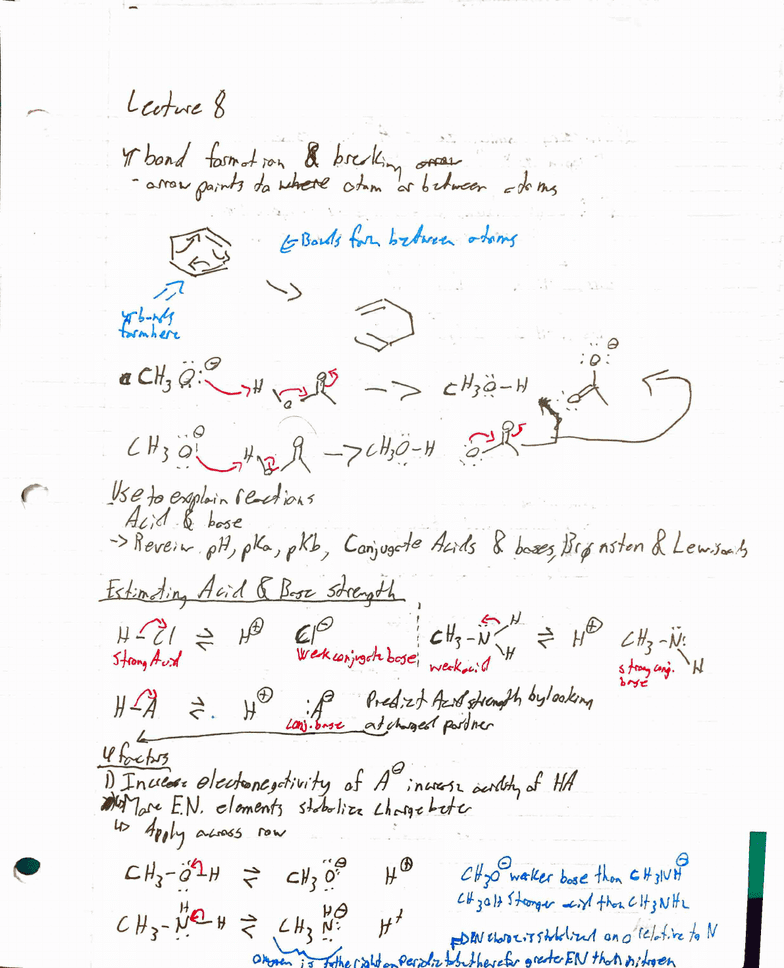 Lecture 8
π bond formation & breaking
- arrow points to where atom or between atoms
← Bonds form between atoms
π bonds
form here
CH3 O: ⊖ H O O → CH3 Ö-H :O: ⊖ O
CH3 O: ⊖ H O O → CH3Ö-H O O
Use to explain reactions
Acid & base
-> Reveiw pH, pKa, pKb, Conjugate Acids & bases, Brønsten & Lewis
Estimating Acid & Base strength
H-Cl ⇌ H⊕ Cl⊖ CH3-N H H ⇌ H⊕ CH3-N: H
Strong Acid Weak conjugate base weak acid strong conj.
base
H-A ⇌ H⊕ :A⊖ Predict Acid strength by looking
conj. base at charged partner
4 factors
1) Increase electronegativity of A⊖ increase acidity of HA
More E.N. elements stabilize charge beter
↳ Apply across row
CH3-O-H ⇌ CH3 O⊖ H⊕ CH3O⊖ weaker base than CH3NH⊖
CH3OH Stronger acid than CH3NH2
CH3-N-H H ⇌ CH3 N: H⊖ H+
charge is stabilized on O relative to N
oxygen is to the right on periodic therefor greater EN than nitrogen